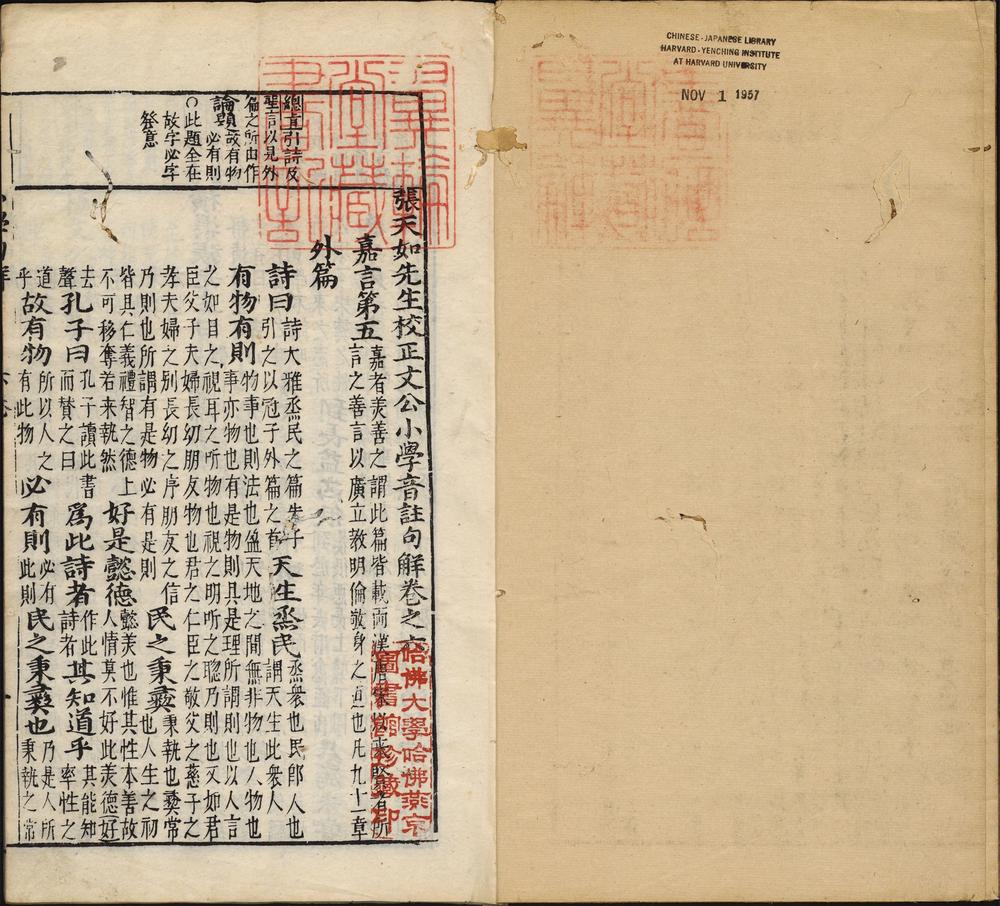 CHINESE-JAPANESE LIBRARY
HARVARD-YENCHING INSTITUTE
AT HARVARD UNIVERSITY
NOV 1 1957
總直引詩及
聖言以見外
篇之所由作
論題故有物
必有則
○此題全在
故字必字
發意
張天如先生校正文公小學音註句解卷之六
嘉言第五嘉者美善之謂此篇皆載兩漢唐宋以來賢者所
言之善言以廣立敎明倫敬身之也凡九十一章
外篇
詩曰詩大雅烝民之篇朱子引之以冠于外篇之首天生烝民烝衆也民卽人也謂天生此衆人
有物有則物事也則法也盈天地之間無非物也人物也
事亦物也有是物則具是理所謂則也以人言
之如目之視耳之听物也視之明听之聰乃則也又如君
臣父子夫婦長幼朋友物也君之仁臣之敬父之慈子之
孝夫婦之別長幼之序朋友之信乃則也所謂有是物必有是則民之秉彝秉執也彝常也人生之初
皆具仁義禮智之德上不可移奪若来執然好是懿德懿美也惟其性本善故人情莫不好此美德好
去聲孔子曰孔子讀此書而賛之曰爲此詩者作此詩者其知道乎其能知率性之
道乎故有物所以人之有此物必有則必有此則民之秉彝也乃是人所秉執之常
哈佛大學哈佛燕京
圖書館珍藏印